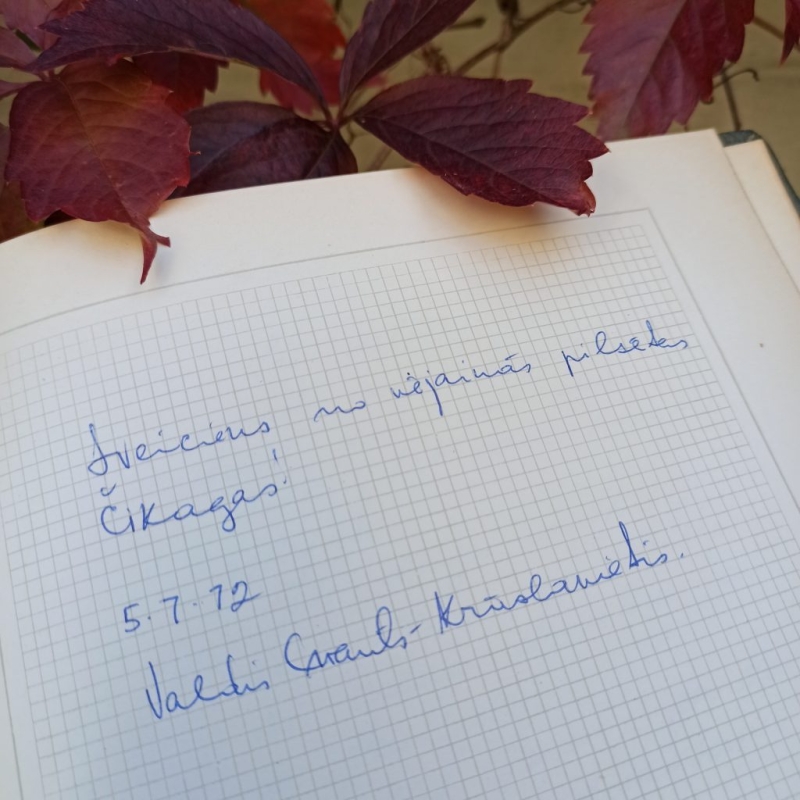 Sveiciens no vējainās pilsētas
Čikagas!
5.7.72
Valdis Krāslavietis.